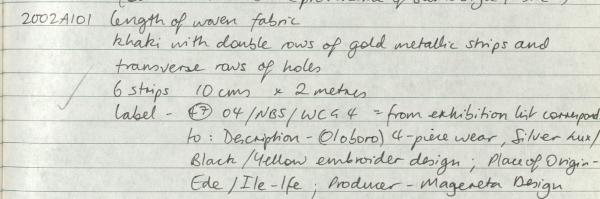 2002A101 length of woven fabric
khaki with double rows of gold metallic strips and
transverse rows of holes
6 strips 10 cms x 2 metres
Label - E7 04/NBS/WCG4 = from exhibition list correspond
to : Description - Oloboro) 4-piece wear, Silver Lux/
Black/Yellow embroider design ; Place of Origin -
Ede / Ile-Ife ; Producer - Magereta Design